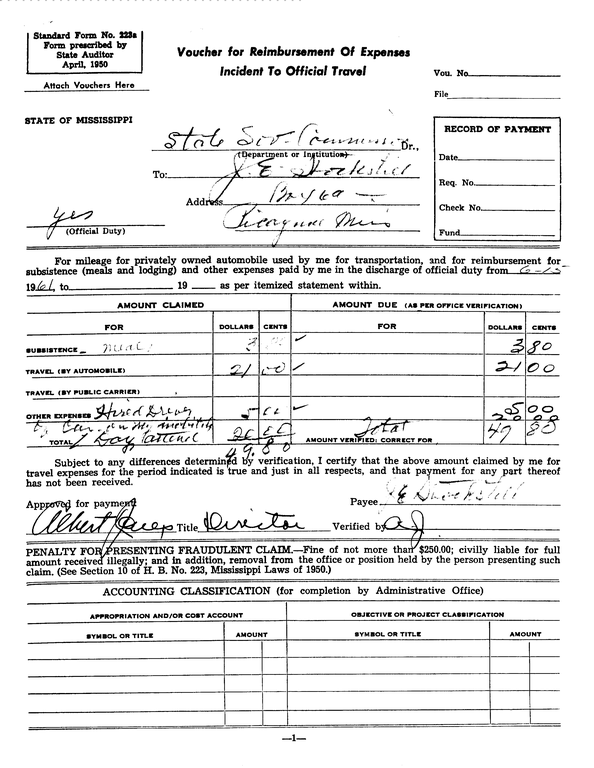 Standard Form No. 223a
Form prescribed by
State Auditor
April, 1950
Attach Vouchers Here
Voucher for Reimbursement Of Expenses
Incident To Official Travel
Vou. No.
File
STATE OF MISSISSIPPI
State Sov. Commission Dr.,
(Department or Institution)
To: J. E. Stockstill
Address Box
Picayune Miss
yes
(Official Duty)
RECORD OF PAYMENT
Date
Req. No.
Check No.
Fund
For mileage for privately owned automobile used by me for transportation, and for reimbursement for
subsistence (meals and lodging) and other expenses paid by me in the discharge of official duty from 6-15
1961, to 19 as per itemized statement within.
AMOUNT CLAIMED AMOUNT DUE (AS PER OFFICE VERIFICATION)
FOR DOLLARS CENTS FOR DOLLARS CENTS
SUBSISTENCE meals 3 80 ✓ 3 80
TRAVEL (BY AUTOMOBILE) 21 00 ✓ 21 00
TRAVEL (BY PUBLIC CARRIER)
OTHER EXPENSES Hired 5 00 ✓ 5 00
Car on my
20 00
TOTAL 1 Day 20 00 AMOUNT VERIFIED: CORRECT FOR Total 49 80
49.80
Subject to any differences determined by verification, I certify that the above amount claimed by me for
travel expenses for the period indicated is true and just in all respects, and that payment for any part thereof
has not been received.
Approved for payment Payee J E Stockstill
Albert Jones Title Director Verified by AJ
PENALTY FOR PRESENTING FRAUDULENT CLAIM.—Fine of not more than $250.00; civilly liable for full
amount received illegally; and in addition, removal from the office or position held by the person presenting such
claim. (See Section 10 of H. B. No. 223, Mississippi Laws of 1950.)
ACCOUNTING CLASSIFICATION (for completion by Administrative Office)
APPROPRIATION AND/OR COST ACCOUNT OBJECTIVE OR PROJECT CLASSIFICATION
SYMBOL OR TITLE AMOUNT SYMBOL OR TITLE AMOUNT
—1—